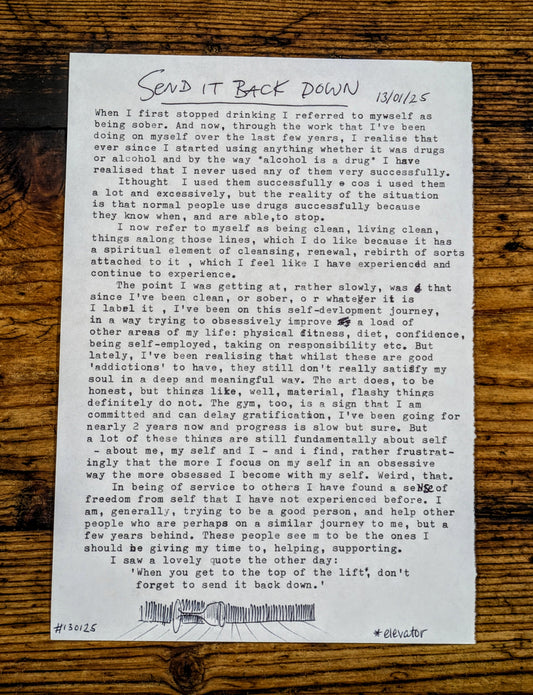 SEND IT BACK DOWN
13/01/25
When I first stopped drinking I referred to mywself as
being sober. And now, through the work that I've been
doing on myself over the last few years, I realise that
ever since I started using anything whether it was drugs
or alcohol and by the way *alcohol is a drug* I have
realised that I never used any of them very successfully.
Ithought I used them successfully cos i used them
a lot and excessively, but the reality of the situation
is that normal people use drugs successfully because
they know when, and are able,to stop.
I now refer to myself as being clean, living clean,
things aalong those lines, which I do like because it has
a spiritual element of cleansing, renewal, rebirth of sorts
attached to it , which I feel like I have experienced and
continue to experience.
The point I was getting at, rather slowly, was that
since I've been clean, or sober, o r whateger it is
I label it , I've been on this self-devlopment journey,
in a way trying to obsessively improve a load of
other areas of my life: physical fitness, diet, confidence,
being self-employed, taking on responsibility etc. But
lately, I've been realising that whilst these are good
'addictions' to have, they still don't really satisfy my
soul in a deep and meaningful way. The art does, to be
honest, but things like, well, material, flashy things
definitely do not. The gym, too, is a sign that I am
committed and can delay gratification, I've been going for
nearly 2 years now and progress is slow but sure. But
a lot of these things are still fundamentally about self
- about me, my self and I - and i find, rather frustrat-
ingly that the more I focus on my self in an obsessive
way the more obsessed I become with my self. Weird, that.
In being of service to others I have found a sense of
freedom from self that I have not experienced before. I
am, generally, trying to be a good person, and help other
people who are perhaps on a similar journey to me, but a
few years behind. These people see m to be the ones I
should be giving my time to, helping, supporting.
I saw a lovely quote the other day:
'When you get to the top of the lift*, don't
forget to send it back down.'
#130125
*elevator